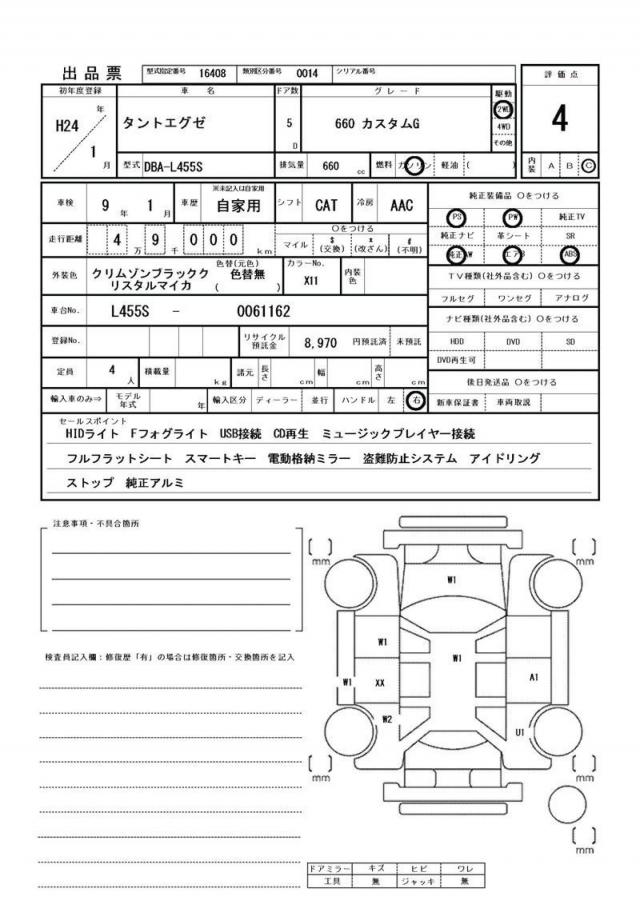 出品票
型式指定番号 16408 類別区分番号 0014 シリアル番号
評価点
4
内装 A B C
初年度登録 車名 ドア数 グレード 駆動
H24 年 1 月
タントエグゼ 5 D 660 カスタムG
2WD
4WD
その他
型式 DBA-L455S 排気量 660 cc 燃料 ガソリン 軽油 ( )
車検 9 年 1 月 車歴 ※未記入は自家用 自家用 シフト CAT 冷房 AAC
走行距離 4 万 9 千 0 0 0 km
○をつける
マイル $ (交換) x (改ざん) # (不明)
外装色 クリムゾンブラックク
リスタルマイカ
色替(元色)
色替無
( )
カラーNo.
X11
内装色
車台No. L455S - 0061162
登録No. リサイクル預託金 8,970 円預託済 未預託
定員 4 人 積載量 kg 諸元 長さ cm 幅 cm 高さ cm
輸入車のみ⇒ モデル年式 年 輸入区分 ディーラー 並行 ハンドル 左 右
純正装備品 ○をつける
PS PW 純正TV
純正ナビ 革シート SR
純正AW エアB ABS
TV種類(社外品含む) ○をつける
フルセグ ワンセグ アナログ
ナビ種類(社外品含む) ○をつける
HDD DVD SD
DVD再生可
後日発送品 ○をつける
新車保証書 車両取説
セールスポイント
HIDライト Fフォグライト USB接続 CD再生 ミュージックプレイヤー接続
フルフラットシート スマートキー 電動格納ミラー 盗難防止システム アイドリング
ストップ 純正アルミ
注意事項・不具合箇所
検査員記入欄:修復歴「有」の場合は修復箇所・交換箇所を記入
[ ] mm
[ ] mm
W1
W1
W1
W1
XX
A1
W2
U1
[ ] mm
[ ] mm
[ ] mm
ドアミラー キズ ヒビ ワレ
工具 無 ジャッキ 無